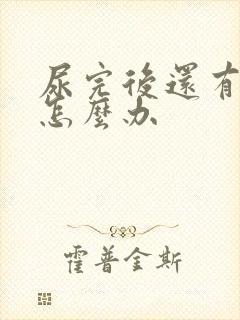 尿完後還有
怎麼办
霍普金斯